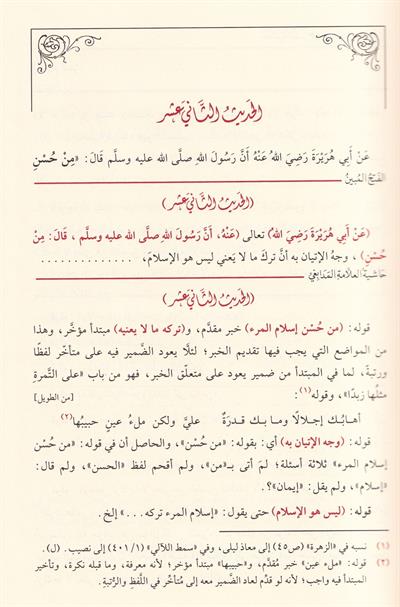 الحَدِيثُ الثَّانِيَ عَشَرَ
عَنْ أَبِي هُرَيْرَةَ رَضِيَ اللهُ عَنْهُ أَنَّ رَسُولَ اللهِ صلَّى الله عليه وسلَّم قَالَ: «مِنْ حُسْنِ
الفَتْحُ المُبِينُ
(الحَدِيثُ الثَّانِيَ عَشَرَ)
(عَنْ أَبِي هُرَيْرَةَ رَضِيَ اللهُ) تعالى (عَنْهُ، أَنَّ رَسُولَ اللهِ صلَّى الله عليه وسلَّم، قَالَ: مِنْ
حُسْنِ) ، وجهُ الإتيان به أنَّ تركَ ما لا يَعني ليس هو الإسلامَ، ..............
حَاشيَة العَلَّامَةِ المَدَابِغِيّ
(الحَدِيثُ الثَّانِيَ عَشَرَ)
قوله: (من حُسْن إسلام المرء) خبر مقدَّم، و(تركه ما لا يعنيه) مبتدأ مؤخَّر، وهذا
من المواضع التي يجب فيها تقديم الخبر؛ لئلَّا يعود الضَّمير فيه على متأخّر لفظًا
ورتبةً، لما في المبتدأ من ضمير يعود على متعلَّق الخبر، فهو من باب «على التَّمرةِ
مثلُها زبدًا»، وقوله(١): [من الطويل]
أهابُكِ إجلالًا وما بكِ قدرَةٌ عليَّ ولكن ملءُ عينٍ حبيبُها(٢)
قوله: (وجه الإتيان به) أي: بقوله: «من حُسْن»، والحاصل أن في قوله: «من حُسْن
إسلام المرء» ثلاثة أسئلة؛ لمَ أتى بـ«من»، ولم أقحم لفظ «الحسن»، ولم قال:
«إسلام»، ولم يقل: «إيمان»؟.
قوله: (ليس هو الإسلام) حتى يقول: «إسلام المرء تركه...» إلخ.
(١) نسبه في «الزهرة» (ص٤٥) إلى معاذ ليلى، وفي «سمط اللآلي» (٤٠١/١) إلى نصيب. (ل).
(٢) قوله: «ملء عين» خبر مُقدَّم، و«حبيبها» مبتدأ مؤخر؛ لأنه معرفة، وما قبله نكرة، وتأخير
المبتدأ فيه واجب؛ لأنه لو قدِّم لعاد الضَّمير معه إلى مُتأخّر في اللَّفظ والرُّتبة.